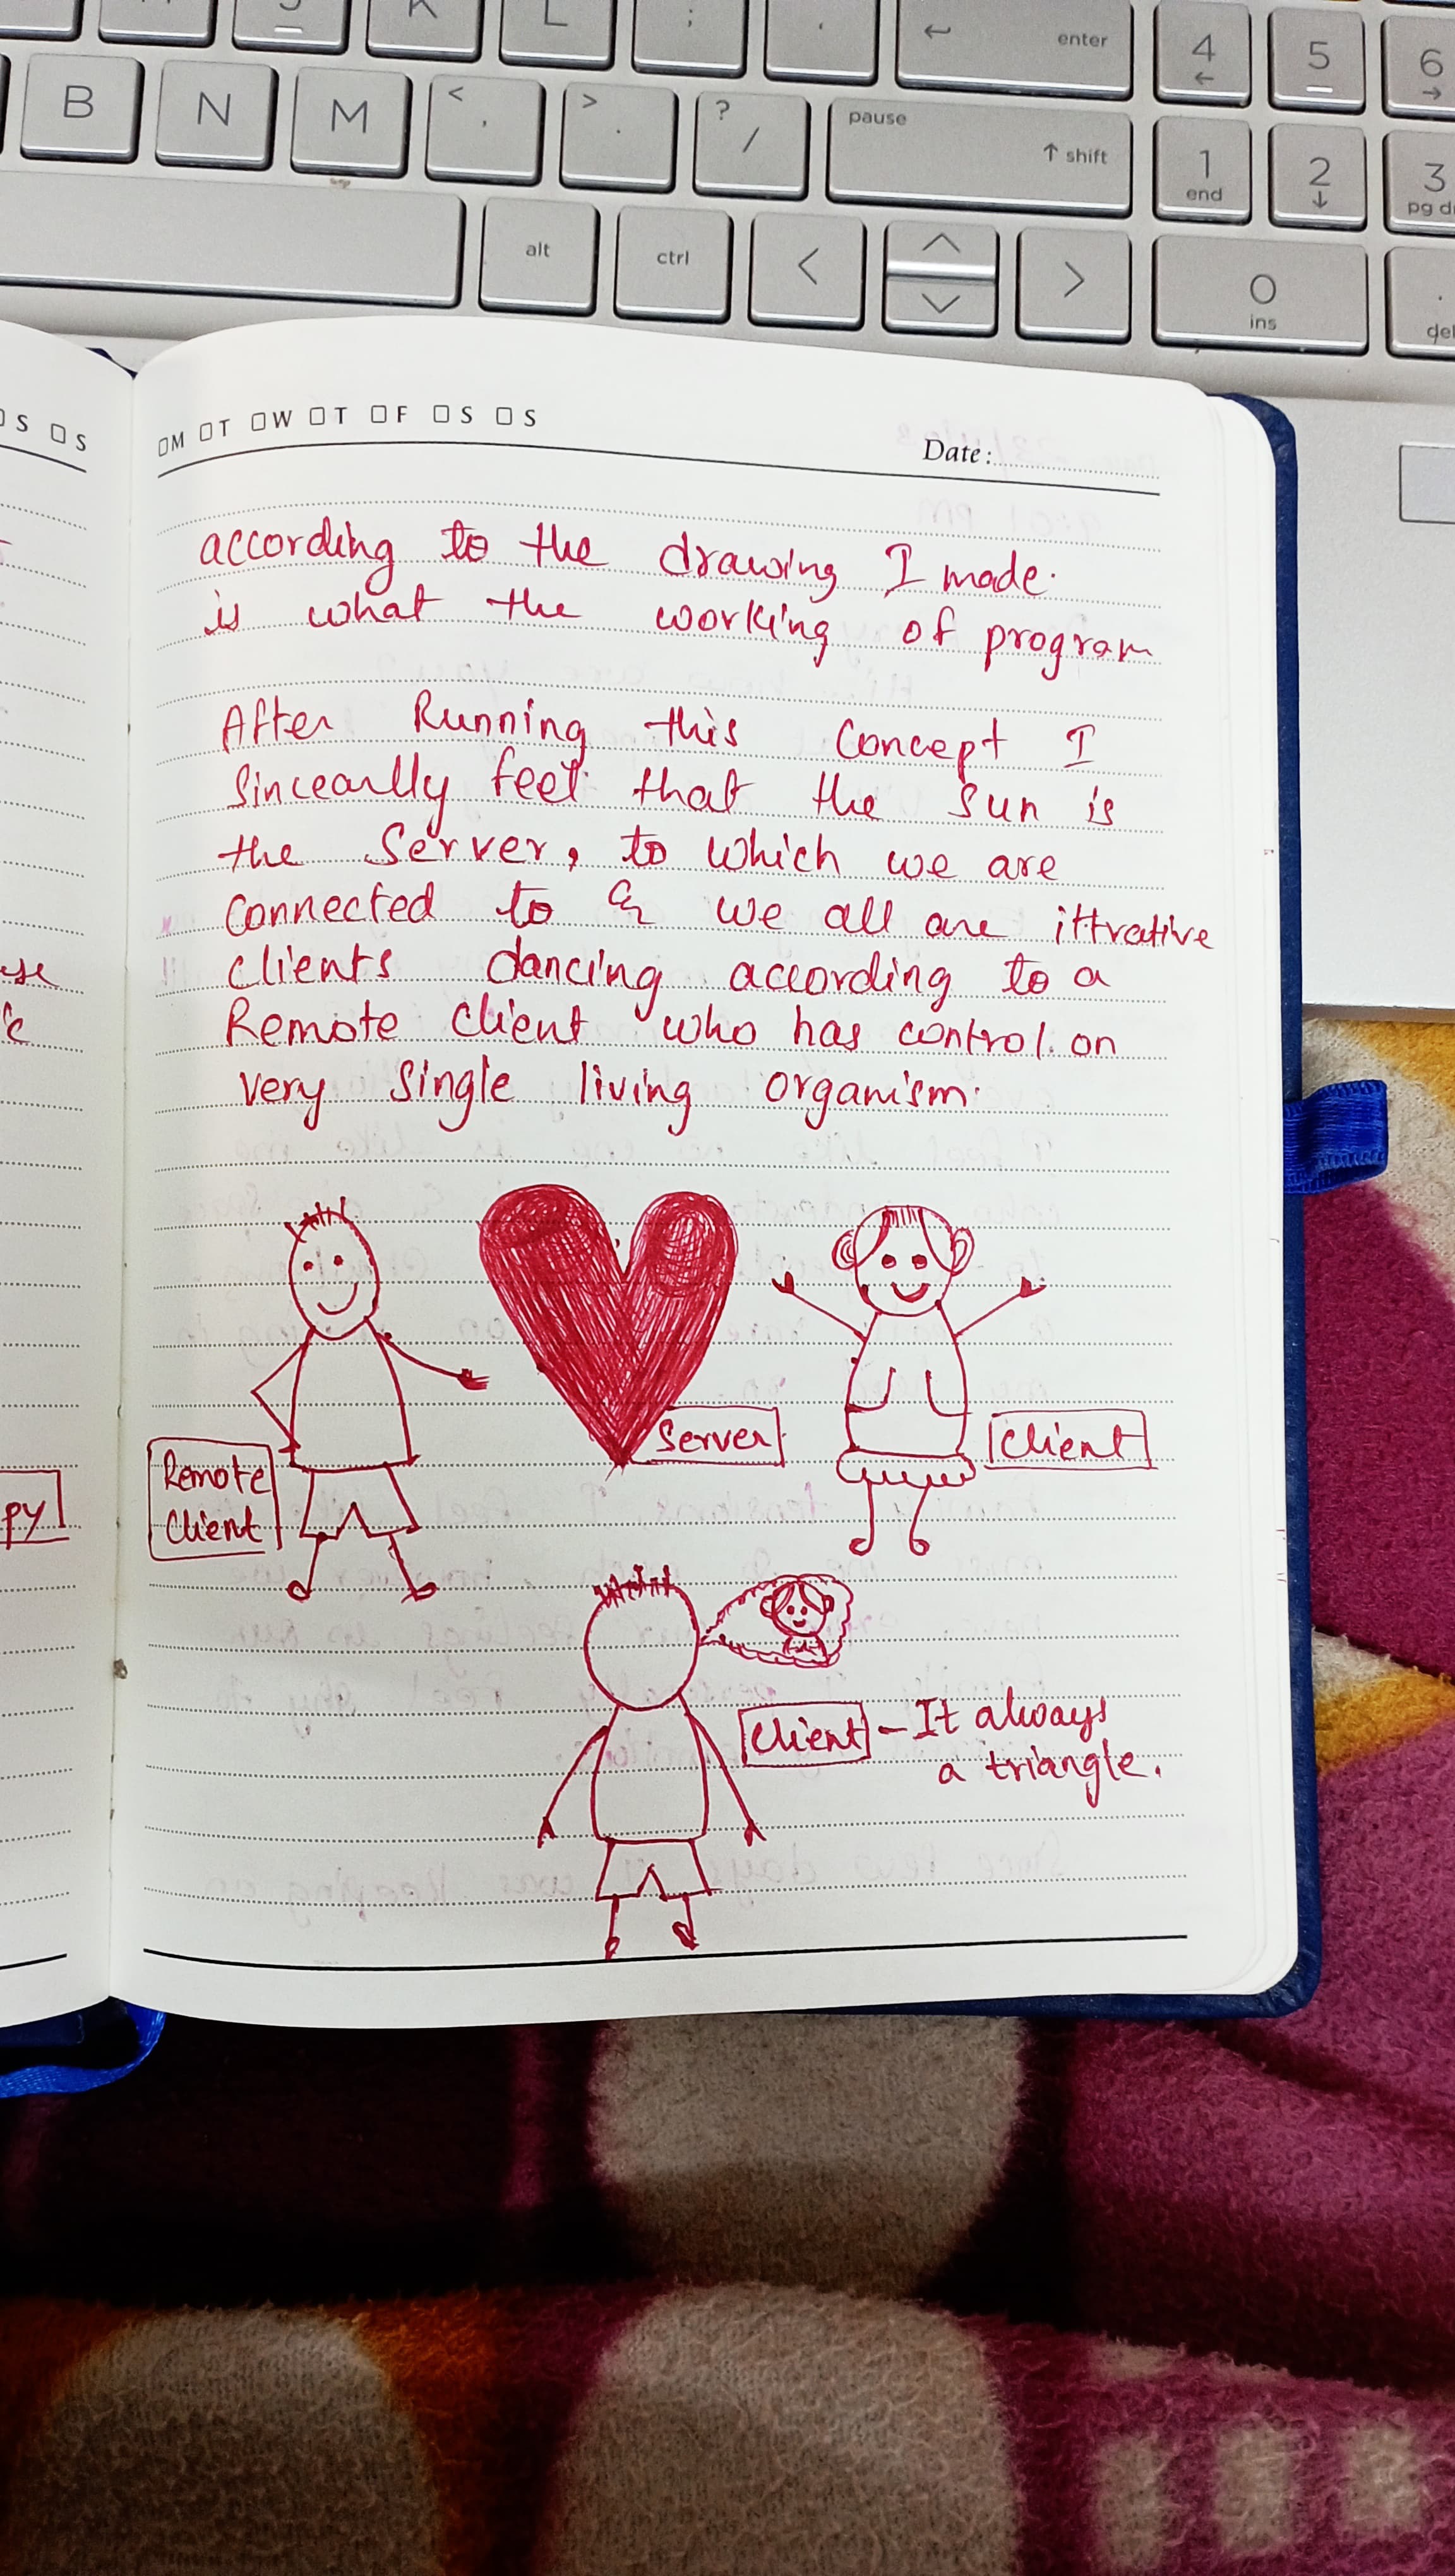 K
L
;
enter
4
5
6
B
N
M
<
,
>
.
?
/
pause
shift
1
end
2
3
alt
ctrl
<
>
0
ins
S S
M T W T F S S
Date:
according to the drawing I made.
is what the working of program
After Running this concept I
Sincearlly feel that the sun is
the Server, to which we are
connected to & we all are ittrative
clients dancing according to a
Remote client who has control on
very single living organism.
Remote
client
Server
client
py
client - It always
a triangle.